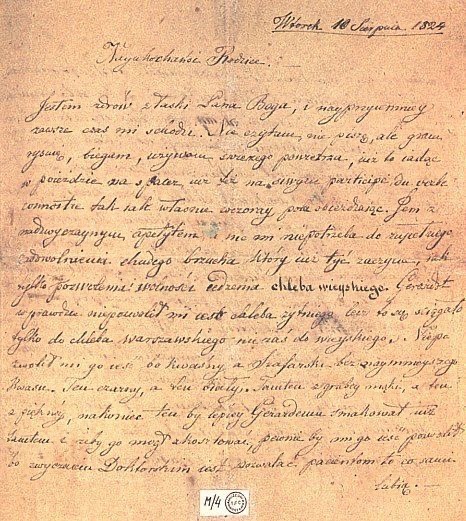 Wtorek 10 Sierpnia 1824
Nayukochańsi Rodzice
Jestem zdrów z łaski Pana Boga, i nayprzyiemniey
zawsze czas mi schodzi. Nie czytam, nie piszę, ale gram,
rysuię, biegam, używam świeżego powietrza, iuż to iadąc
w poieździe na spacer, iuż też na siwym participe du verbe
iak właśnie wczoray pola obieżdżaiąc. Jem z
nadzwyczaynym apetytem i nic mi niepotrzeba do zupełnego
zadowolnienia chudego brzucha, który iuż tyć zaczyna, iak
tylko pozwolenia i wolności iedzenia chleba wieyskiego. Gerardt
wprawdzie niepozwolił mi ieść chleba żytnego lecz to się ściągało
tylko do chleba warszawskiego nie zaś do wieyskiego. Niepo
zwolił mi go ieść bo kwaśny, a Szafarski bez naymnieyszego
kwasu. Ten czarny, a ten biały, tamten z grubéy mąki, a ten
z pięknéy, nakoniec ten by lepiéy Gerardemu smakował iuż
tamten i żeby go mógł zkosztować, pewnie by mi go ieść pozwolił
bo zwyczaiem Doktorskim iest pozwalać pacientom to co sami
lubią. —
M/4